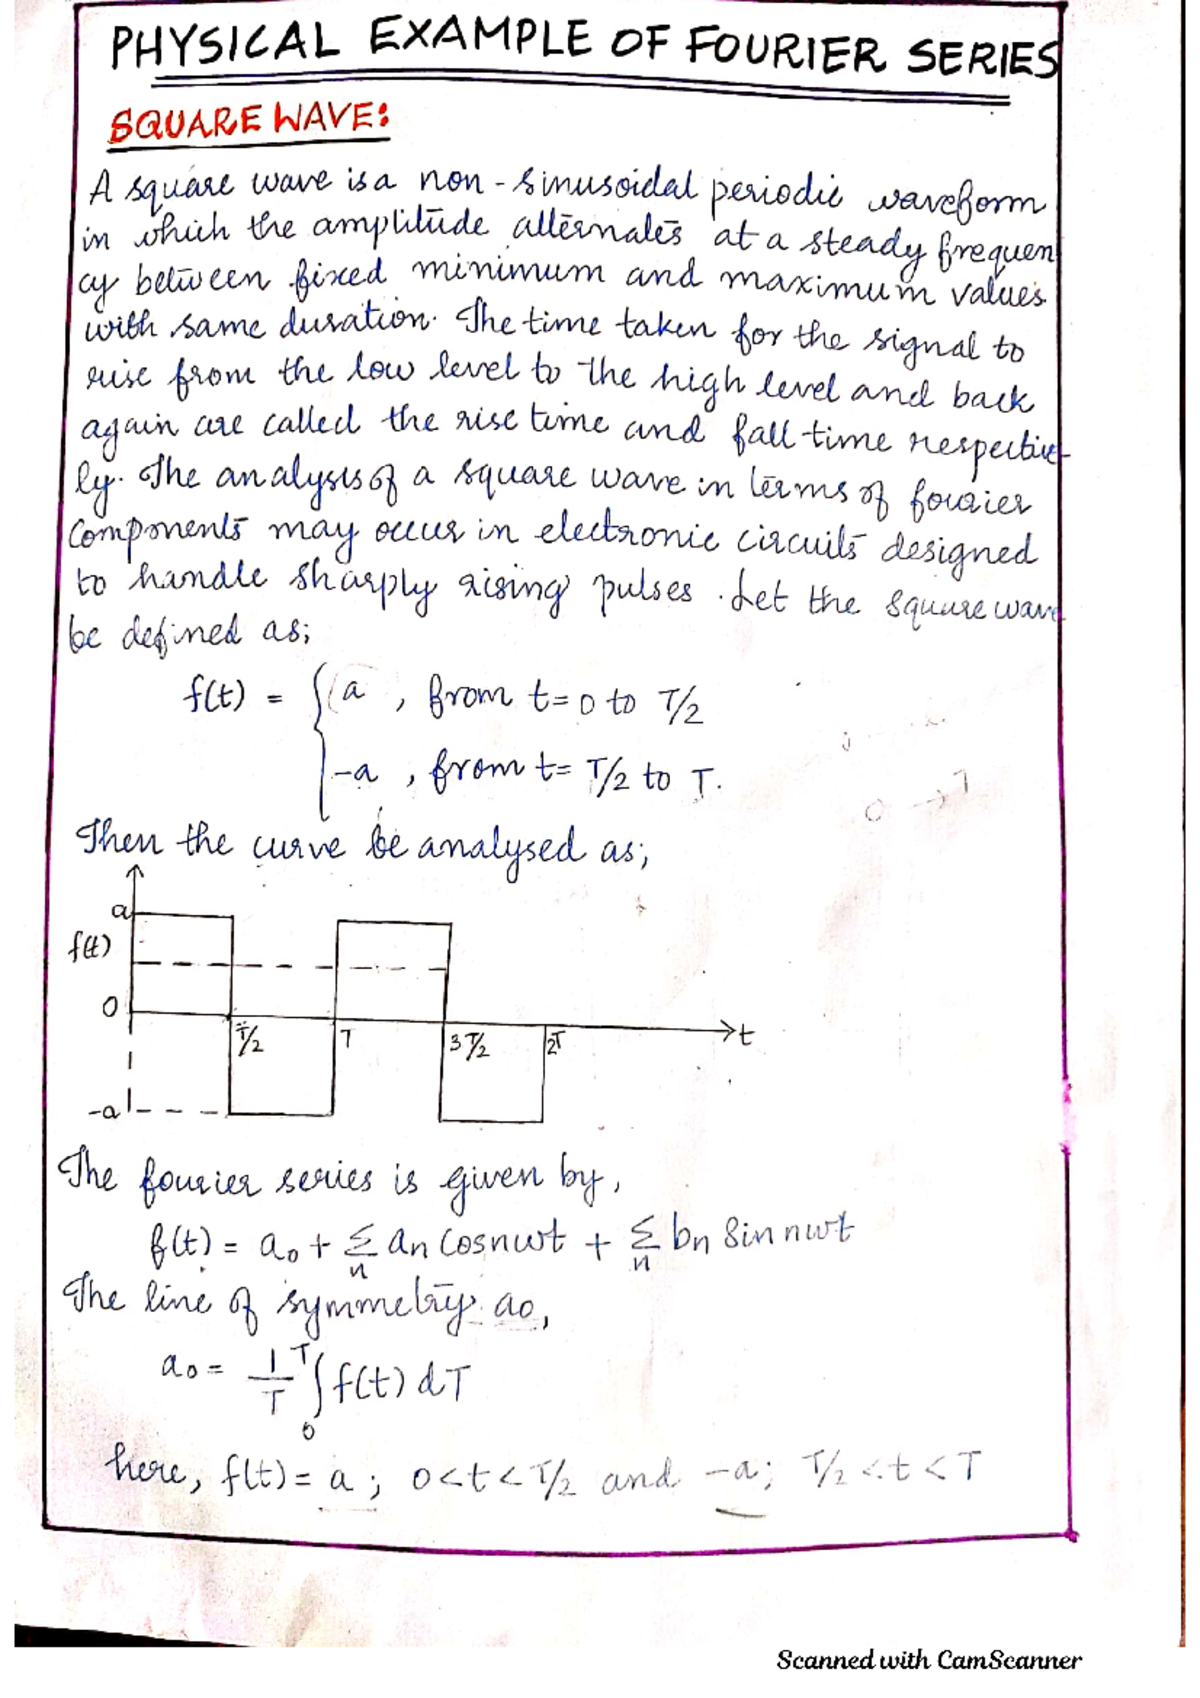 PHYSICAL EXAMPLE OF FOURIER SERIES
SQUARE WAVE:
A square wave is a non-sinusoidal periodic waveform
in which the amplitude alternates at a steady frequen
cy between fixed minimum and maximum values
with same duration. The time taken for the signal to
rise from the low level to the high level and back
again are called the rise time and fall time respective
ly. The analysis of a square wave in terms of fourier
Components may occur in electronic circuits designed
to handle sharply rising pulses. Let the square wave
be defined as;
f(t) = { a , from t=0 to T/2
-a , from t= T/2 to T.
0 → T
Then the curve be analysed as;
a
f(t)
0
T/2 T 3T/2 2T → t
-a
The fourier series is given by,
f(t) = a₀ + Σₙ aₙ Cosnωt + Σₙ bₙ Sin nωt
The line of symmetry a₀,
a₀ = 1/T ₀∫ᵀ f(t) dT
here, f(t) = a ; 0<t<T/2 and -a; T/2<t<T
Scanned with CamScanner